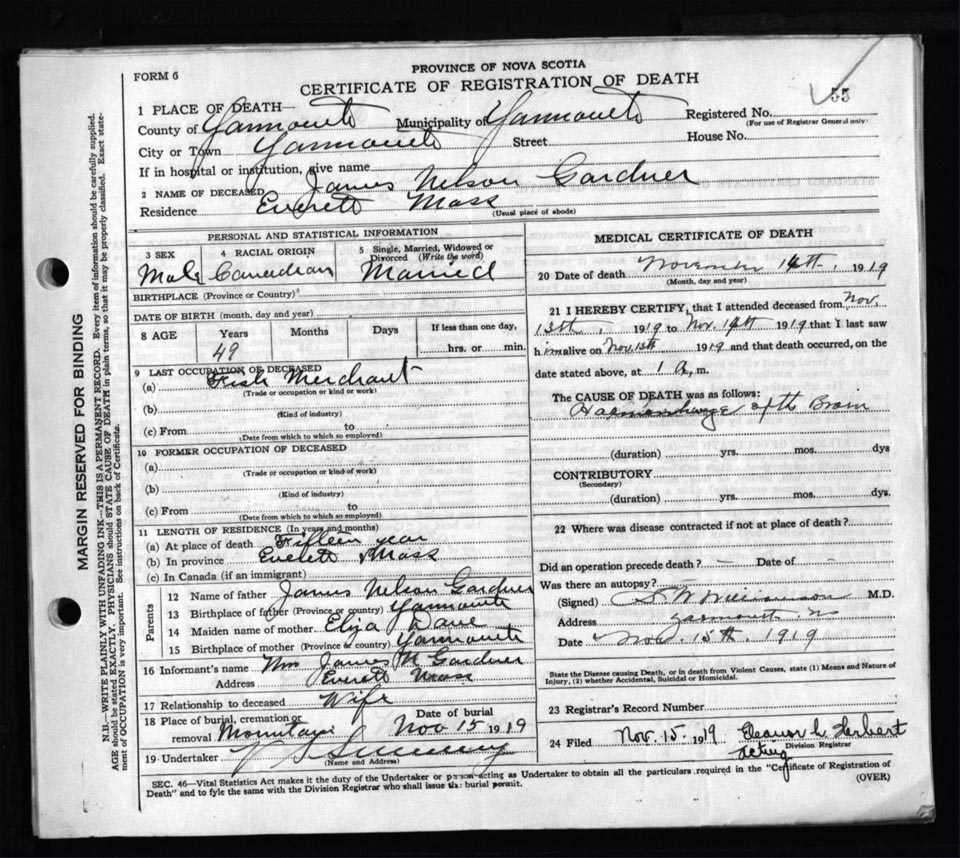 PROVINCE OF NOVA SCOTIA
FORM 6
CERTIFICATE OF REGISTRATION OF DEATH
55
1 PLACE OF DEATH—
County of Yarmouth Municipality of Yarmouth Registered No.
(For use of Registrar General only)
City or Town Yarmouth Street House No.
If in hospital or institution, give name
2 NAME OF DECEASED James Nelson Gardner
Residence Everett Mass
(Usual place of abode)
PERSONAL AND STATISTICAL INFORMATION
3 SEX 4 RACIAL ORIGIN 5 Single, Married, Widowed or Divorced (Write the word)
Male Canadian Married
BIRTHPLACE (Province or Country)
DATE OF BIRTH (month, day and year)
8 AGE Years Months Days If less than one day,
49 hrs. or min.
9 LAST OCCUPATION OF DECEASED
(a) Fish Merchant
(Trade or occupation or kind of work)
(b)
(Kind of industry)
(c) From to
(Date from which to which so employed)
10 FORMER OCCUPATION OF DECEASED
(a)
(Trade or occupation or kind of work)
(b)
(Kind of industry)
(c) From to
(Date from which to which so employed)
11 LENGTH OF RESIDENCE (In years and months)
(a) At place of death Fifteen year
(b) In province Everett Mass
(c) In Canada (if an immigrant)
Parents
12 Name of father James Nelson Gardner
13 Birthplace of father (Province or country) Yarmouth
14 Maiden name of mother Eliza
15 Birthplace of mother (Province or country) Yarmouth
16 Informant's name Mrs James N Gardner
Address Everett Mass
17 Relationship to deceased Wife
18 Place of burial, cremation or removal Mountain Date of burial Nov 15 1919
19 Undertaker
(Name and Address)
MEDICAL CERTIFICATE OF DEATH
20 Date of death November 14th, 1919
(Month, day and year)
21 I HEREBY CERTIFY, that I attended deceased from Nov.
13th, 1919 to Nov. 14th 1919 that I last saw
him alive on Nov. 13th 1919 and that death occurred, on the
date stated above, at 1 A. m.
The CAUSE OF DEATH was as follows:
of th
(duration) yrs. mos. dys
CONTRIBUTORY
(Secondary)
(duration) yrs. mos. dys.
22 Where was disease contracted if not at place of death?
Did an operation precede death? — Date of —
Was there an autopsy? —
(Signed) Williamson M.D.
Address Yarmouth NS
Date Nov. 15th. 1919
State the Disease causing Death, or in death from Violent Causes, state (1) Means and Nature of
Injury, (2) whether Accidental, Suicidal or Homicidal.
23 Registrar's Record Number
24 Filed Nov. 15. 1919 Eleanor L. Herbert
Acting Division Registrar
SEC. 46—Vital Statistics Act makes it the duty of the Undertaker or person acting as Undertaker to obtain all the particulars required in the "Certificate of Registration of
Death" and to fyle the same with the Division Registrar who shall issue the burial permit.
(OVER)
MARGIN RESERVED FOR BINDING
N.B.—WRITE PLAINLY WITH UNFADING INK—THIS IS A PERMANENT RECORD. Every item of information should be carefully supplied.
AGE should be stated EXACTLY. PHYSICIANS should STATE CAUSE OF DEATH in plain terms, so that it may be properly classified. Exact state-
ment of OCCUPATION is very important. See instructions on back of Certificate.